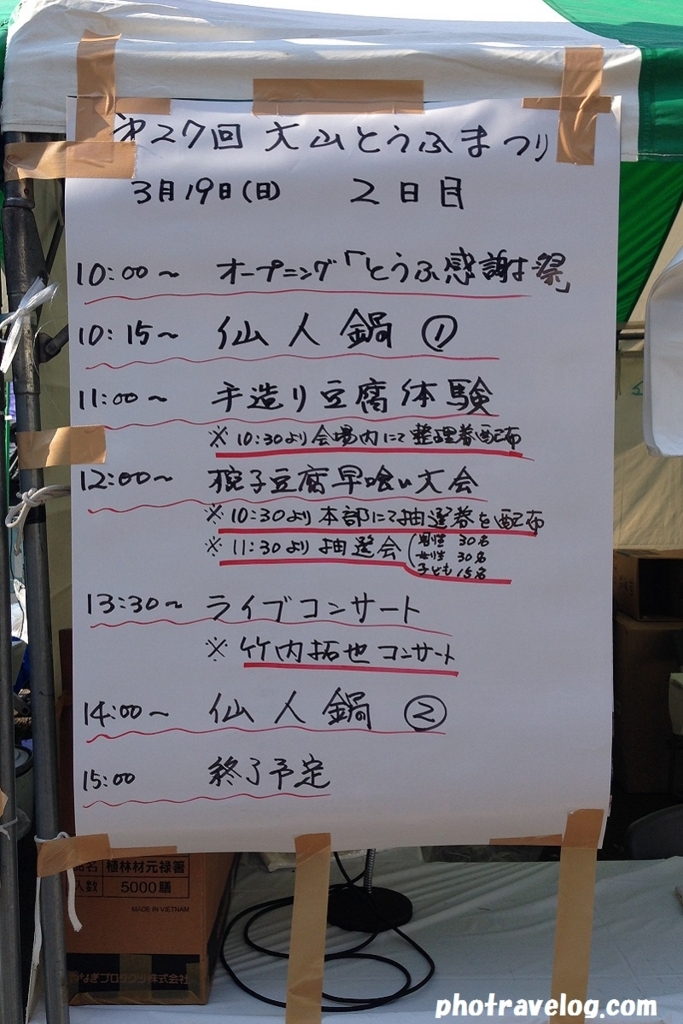 第27回 大山とうふまつり
3月19日(日) 2日目
10:00~ オープニング「とうふ感謝祭」
10:15~ 仙人鍋①
11:00~ 手造り豆腐体験
※10:30より会場内にて整理券配布
12:00~ 椀子豆腐早喰い大会
※10:30より本部にて抽選券を配布
※11:30より抽選会(男性 30名
女性 30名
子ども 15名
13:30~ ライブコンサート
※竹内拓也コンサート
14:00~ 仙人鍋②
15:00 終了予定
名 植林材元禄箸
入数 5000膳
MADE IN VIETNAM
なぎプロダクツ株式会社
photravelog.com